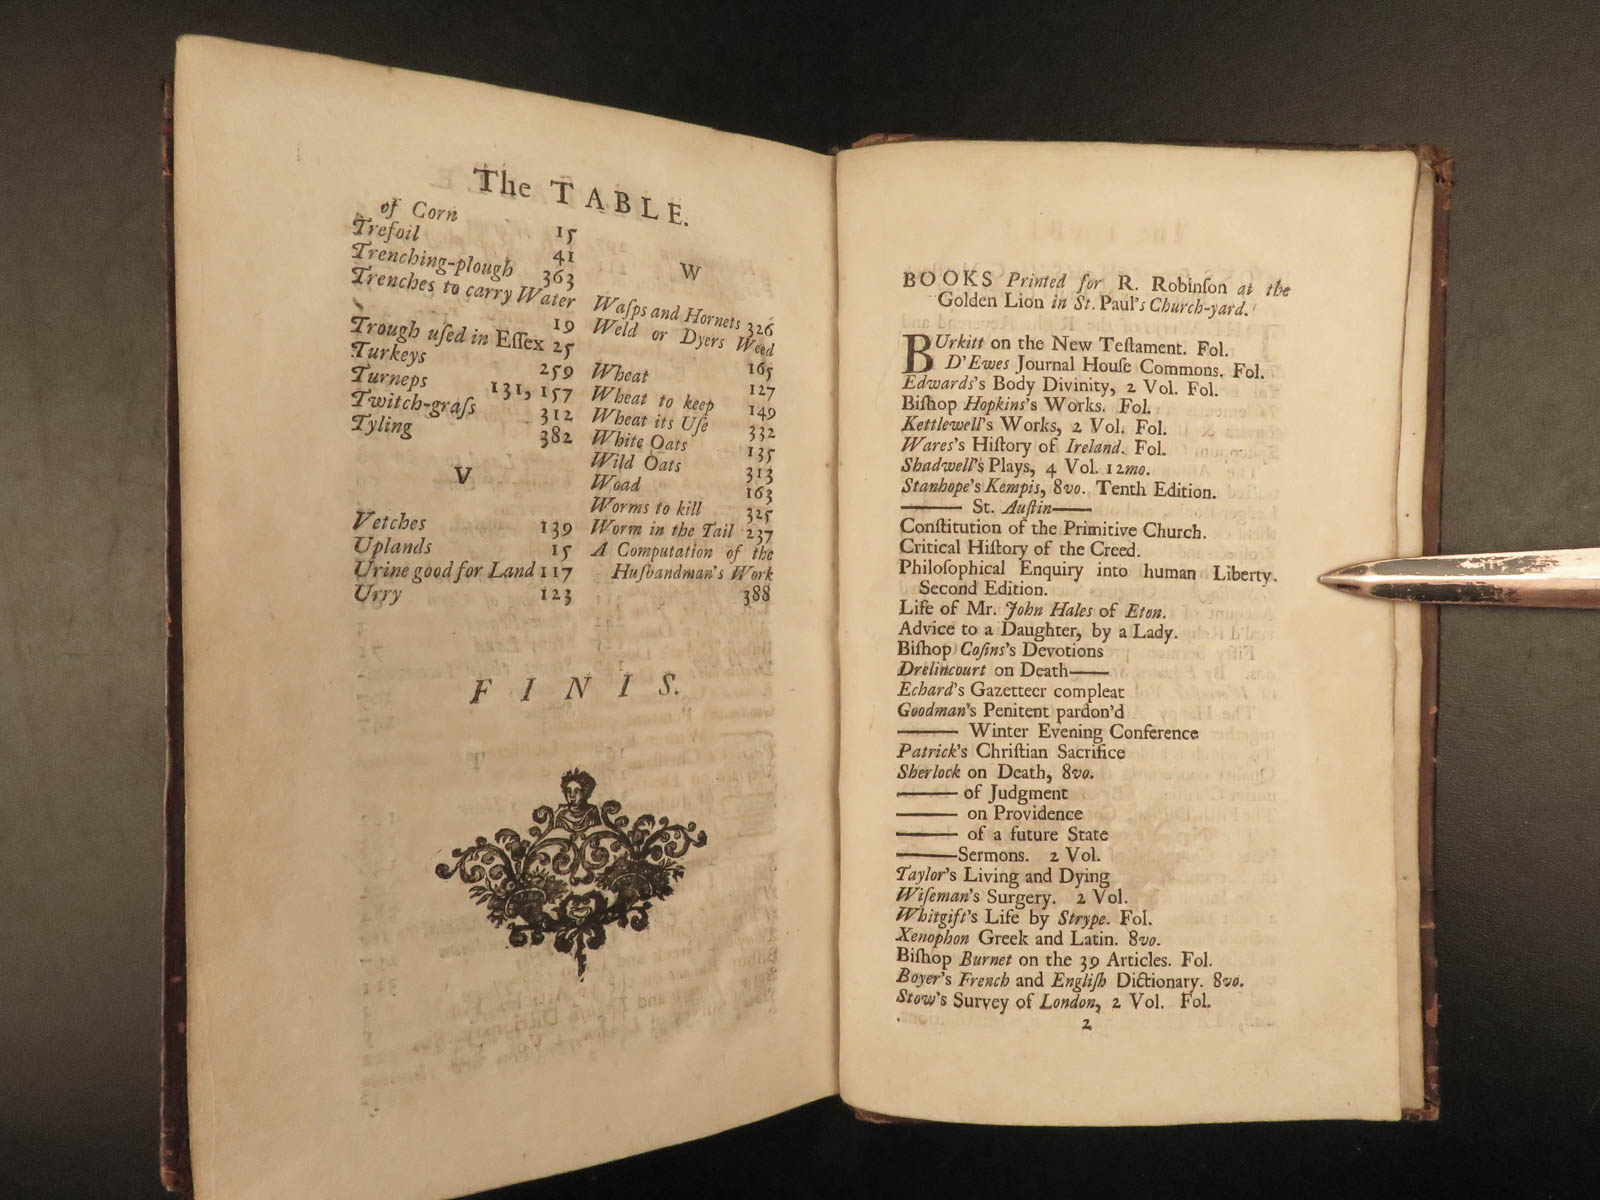 The TABLE.
of Corn 15
Trefoil 41
Trenching-plough 363
Trenches to carry Water
19
Trough uſed in Eſſex 25
Turkeys 259
Turneps 131, 157
Twitch-graſs 312
Tyling 382
V
Vetches 139
Uplands 15
Urine good for Land 117
Urry 123
W
Waſps and Hornets 326
Weld or Dyers Weed
165
Wheat 127
Wheat to keep 149
Wheat its Uſe 332
White Oats 135
Wild Oats 313
Woad 163
Worms to kill 325
Worm in the Tail 237
A Computation of the
Huſbandman's Work
388
FINIS.
BOOKS Printed for R. Robinſon at the
Golden Lion in St. Paul's Church-yard.
BUrkitt on the New Teſtament. Fol.
D'Ewes Journal Houſe Commons. Fol.
Edwards's Body Divinity, 2 Vol. Fol.
Biſhop Hopkins's Works. Fol.
Kettlewell's Works, 2 Vol. Fol.
Wares's Hiſtory of Ireland. Fol.
Shadwell's Plays, 4 Vol. 12mo.
Stanhope's Kempis, 8vo. Tenth Edition.
—— St. Auſtin——
Conſtitution of the Primitive Church.
Critical Hiſtory of the Creed.
Philoſophical Enquiry into human Liberty.
Second Edition.
Life of Mr. John Hales of Eton.
Advice to a Daughter, by a Lady.
Biſhop Coſins's Devotions
Drelincourt on Death——
Echard's Gazetteer compleat
Goodman's Penitent pardon'd
—— Winter Evening Conference
Patrick's Chriſtian Sacrifice
Sherlock on Death, 8vo.
—— of Judgment
—— on Providence
—— of a future State
——Sermons. 2 Vol.
Taylor's Living and Dying
Wiſeman's Surgery. 2 Vol.
Whitgift's Life by Strype. Fol.
Xenophon Greek and Latin. 8vo.
Biſhop Burnet on the 39 Articles. Fol.
Boyer's French and Engliſh Dictionary. 8vo.
Stow's Survey of London, 2 Vol. Fol.
2